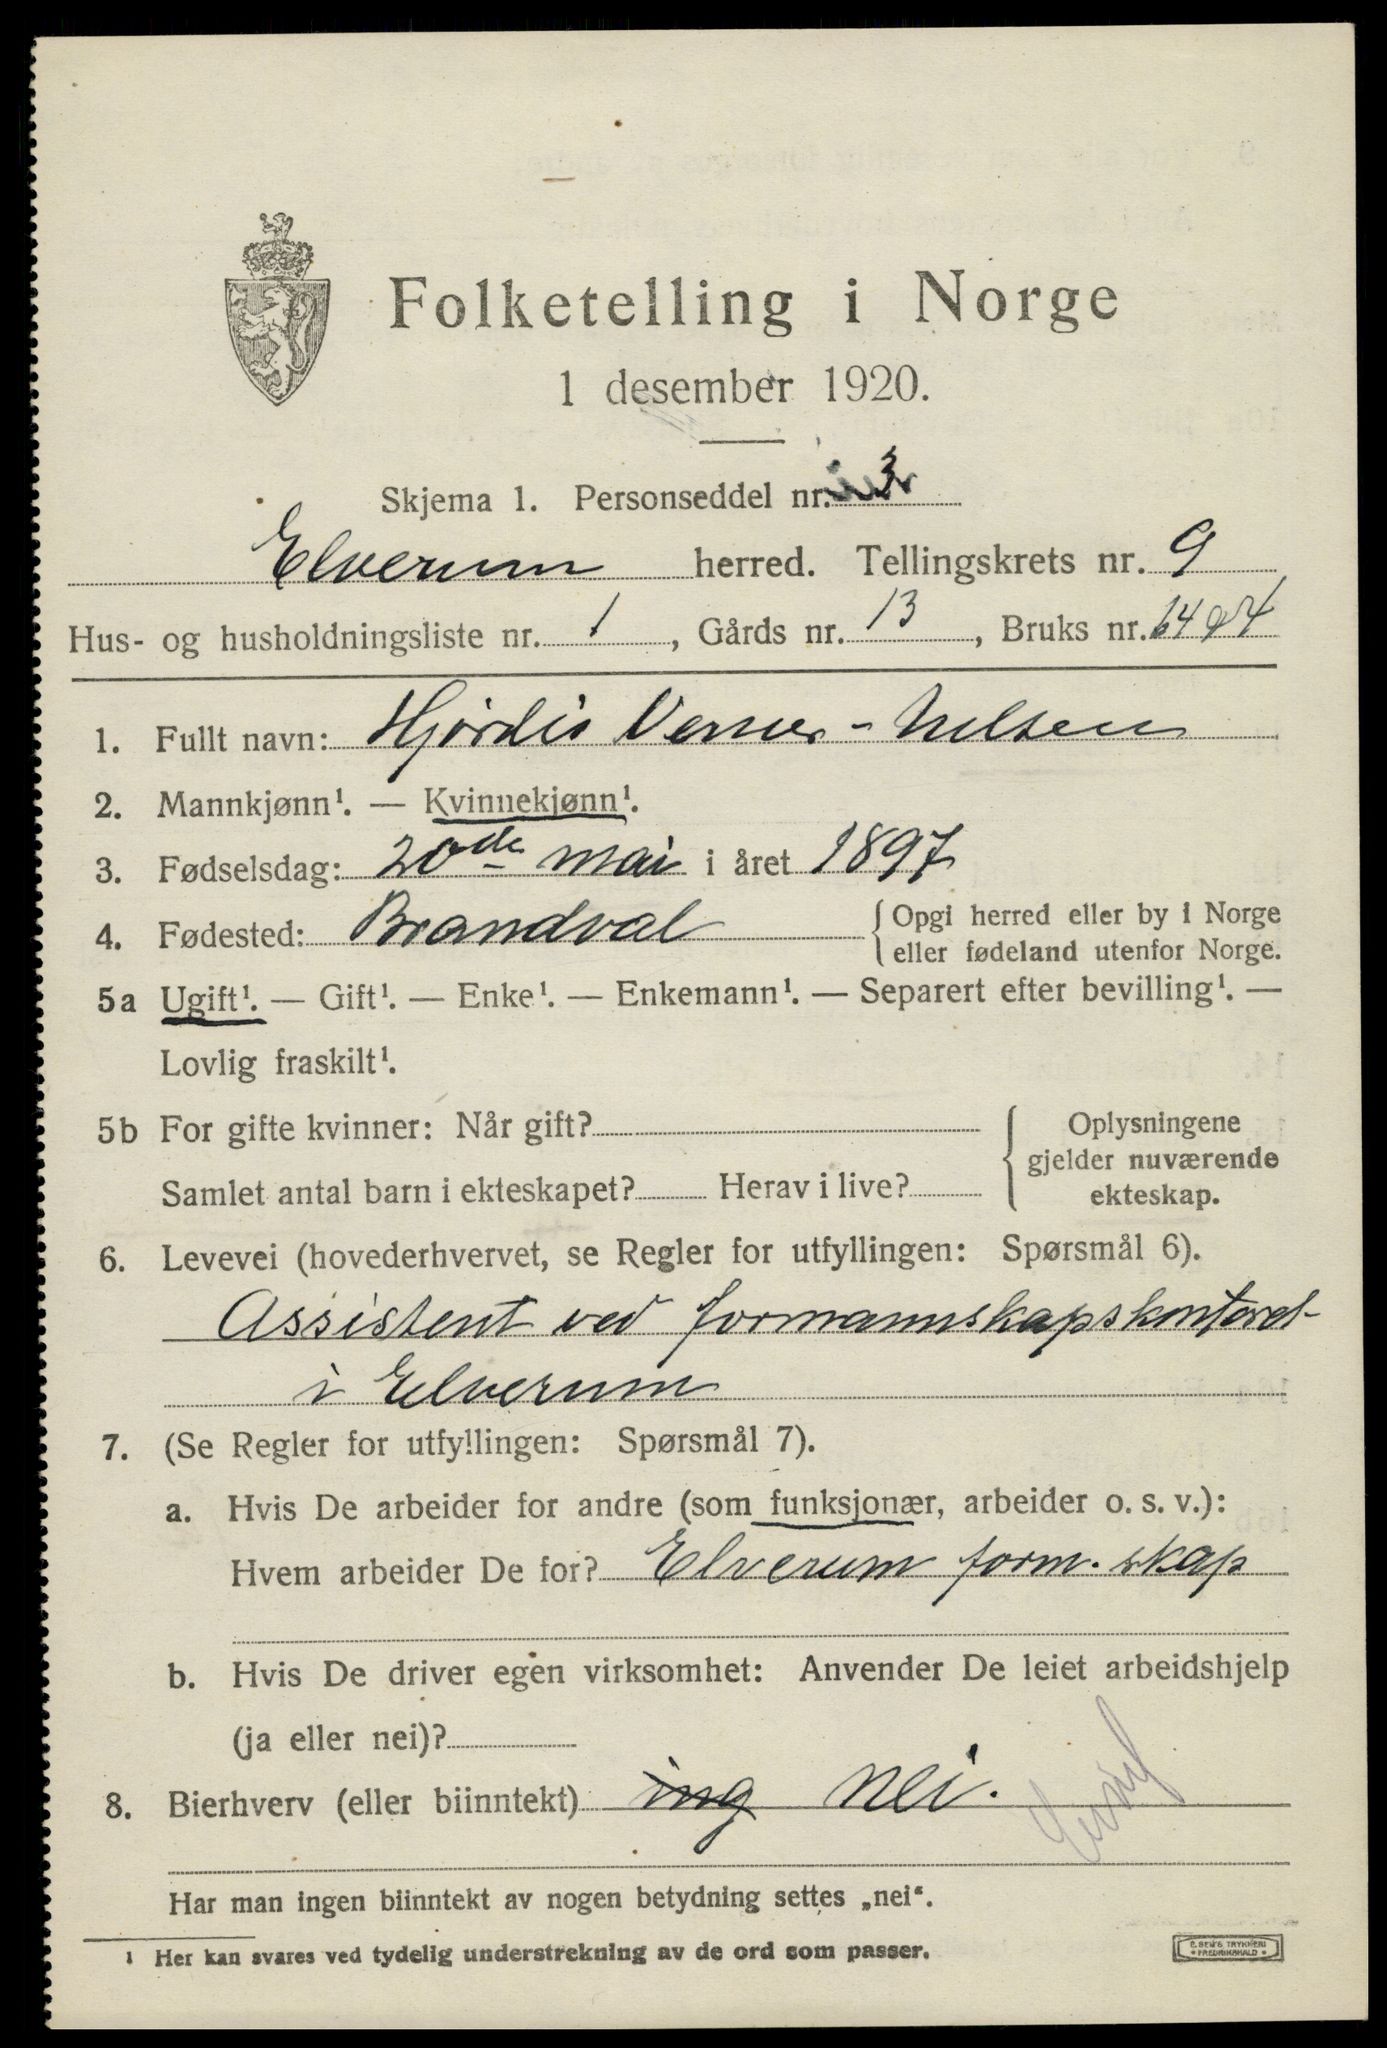 Folketelling i Norge
1 desember 1920.
Skjema 1. Personseddel nr. 3
Elverum herred. Tellingskrets nr. 9
Hus- og husholdningsliste nr. 1, Gårds nr. 13, Bruks nr. 64
1. Fullt navn: Hjørdis Verner-Nilsen
2. Mannkjønn¹. — Kvinnekjønn¹.
3. Fødselsdag: 20de mai i året 1897
4. Fødested: Brandval {Opgi herred eller by i Norge
eller fødeland utenfor Norge.
5a Ugift¹. — Gift¹. — Enke¹. — Enkemann¹. — Separert efter bevilling¹. —
Lovlig fraskilt¹.
5b For gifte kvinner: Når gift? { Oplysningene
gjelder nuværende
Samlet antal barn i ekteskapet? Herav i live?
ekteskap.
6. Levevei (hovederhvervet, se Regler for utfyllingen: Spørsmål 6).
Assistent ved formannskapskontoret
i Elverum
7. (Se Regler for utfyllingen: Spørsmål 7).
a. Hvis De arbeider for andre (som funksjonær, arbeider o. s. v.):
Hvem arbeider De for? Elverum form.skap
b. Hvis De driver egen virksomhet: Anvender De leiet arbeidshjelp
(ja eller nei)?
8. Bierhverv (eller biinntekt) ing nei.
Har man ingen biinntekt av nogen betydning settes „nei“.
¹ Her kan svares ved tydelig understrekning av de ord som passer.
E. SEM'S TRYKKERI
FREDRIKSHALD